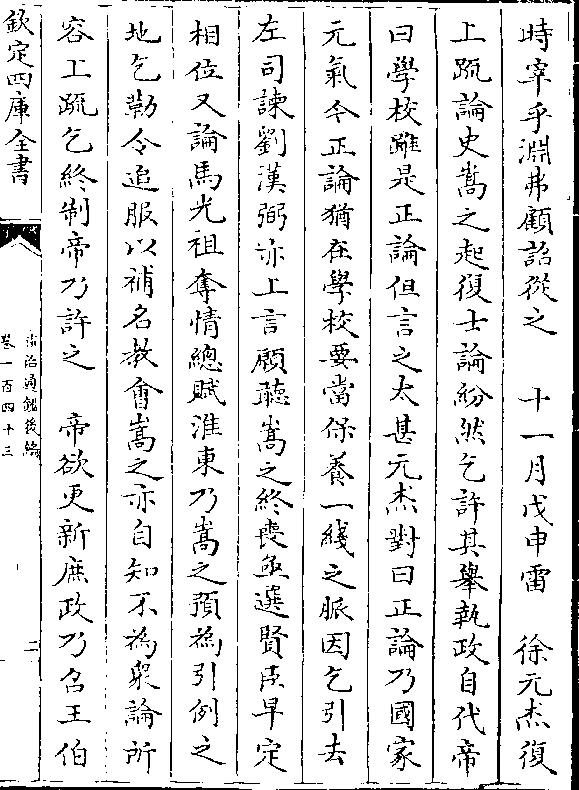 時宰乎淵弗顧詔從之　十一月戊申雷　徐元杰復
上䟽論史嵩之起復士論紛然乞許其舉執政自代帝
曰學校雖是正論但言之太甚元杰對曰正論乃國家
元氣今正論猶在學校要當保養一綫之脈因乞引去
左司諫劉漢弼亦上言願聽嵩之終喪亟選賢臣早定
相位又論馬光祖奪情總賦淮東乃嵩之預為引例之
地乞勒令追服以補名教會嵩之亦自知不為衆論所
容上䟽乞終制帝乃許之　帝欲更新庶政乃召王伯
欽定四庫全書
資治通鑑後編
卷一百四十三
二